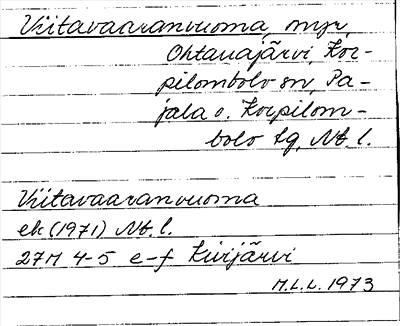 Viitavaaranvuoma, myr,
Ohtanajärvi, Kor-
pilombolo sn, Pa-
jala o. Korpilom-
bolo tg, Nb. l.
Viitavaaranvuoma
ek (1971) Nb. l.
27M 4-5 e-f Kivijärvi
M.L.L. 1973